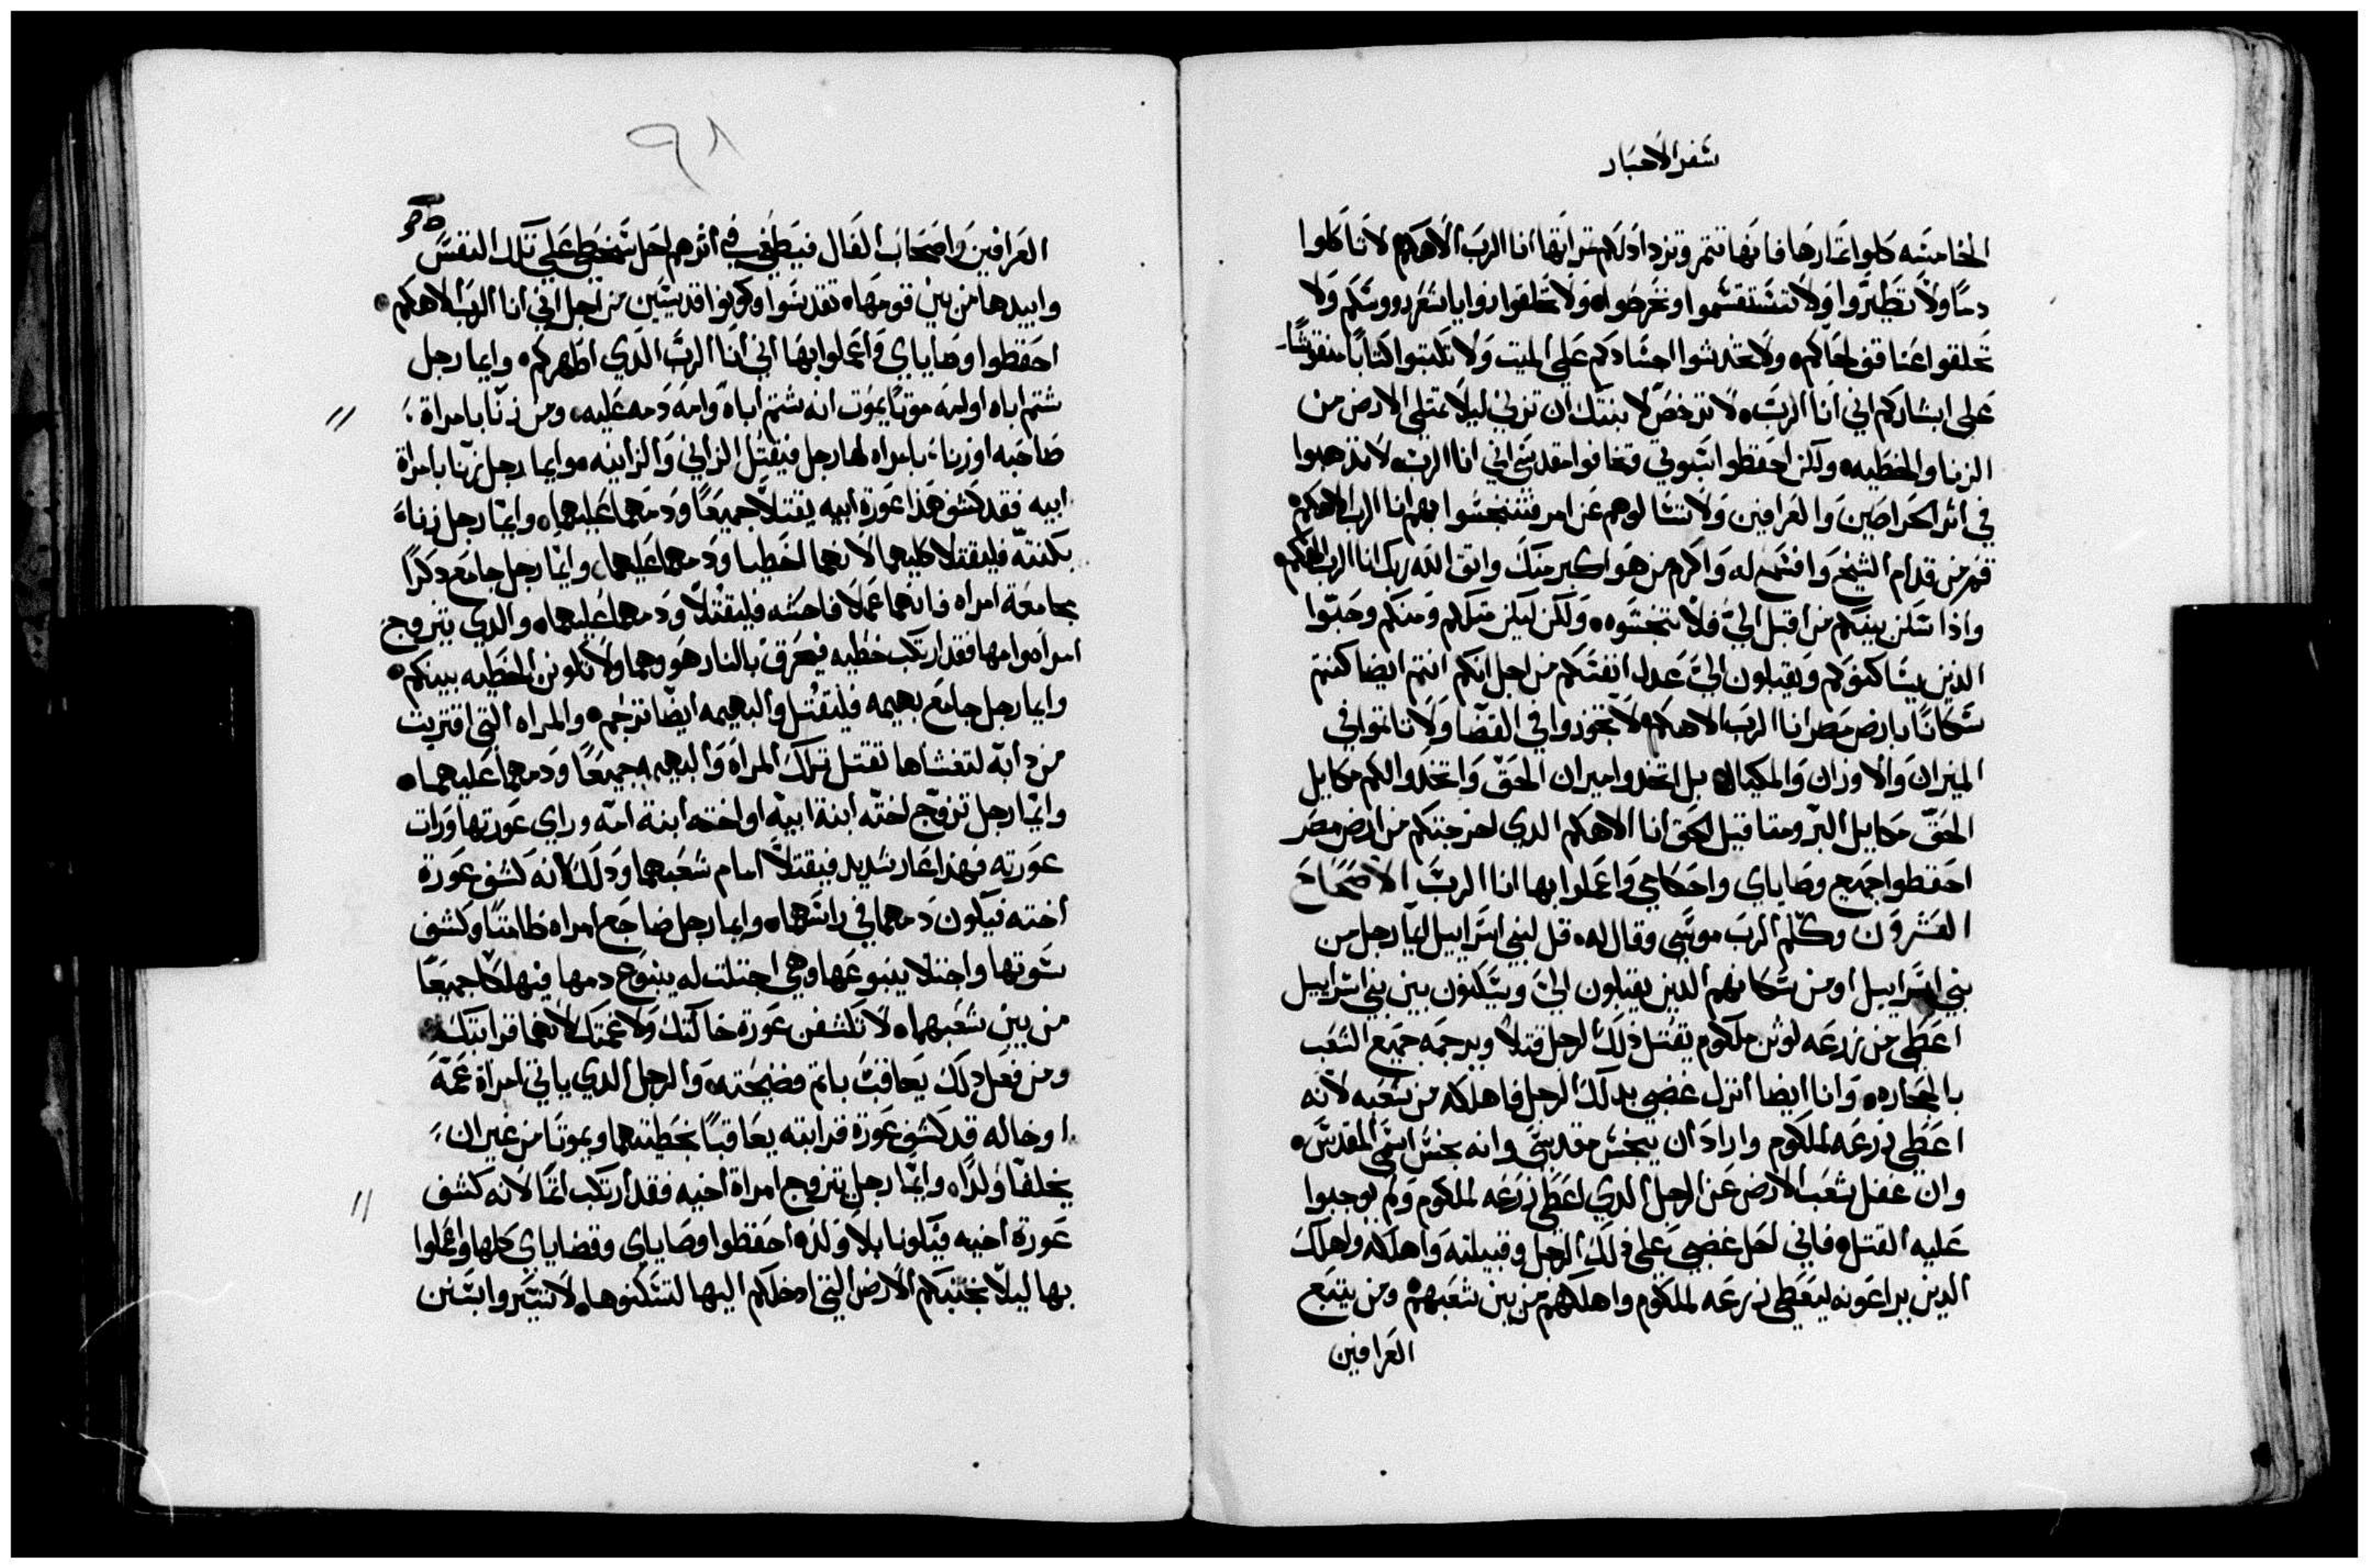 سفر الاحبار
الخامسه كلوا ثمارها فانها تتمر وتزداد لكم تراتها انا الرب الاهكم لا تاكلوا
دمًا ولا تطيروا ولا تستقسموا او تخرصوا ولا تحلقوا زوايا شعر رووسكم ولا
تحلقوا عنا قفو لحاكم ولا تخدشوا اجسادكم على الميت ولا تكتبوا كتابًا منقوشًا
على ابشاركم اني انا الرب لا ترخص لابنتك ان تزني ليلا تمتلي الارض من
الزنا والخطيه ولكن احفظوا سبوتي وخافوا مقدسي اني انا الرب لا تذهبوا
في اثر الخراصين والعرافين ولا تسالوهم عن امر فتنجسوا بهم انا الرب الاهكم
قم من قدام الشيخ واقشم له واكرم من هو اكبر منك واتق الله ربك انا الرب الاهكم
واذا سكن بينكم من اقبل الي فلا تبخسوه ولكن ليكن مثلكم ومنكم وحبوا
الذين يساكنوكم ويقبلون الي عدل انفسكم من اجل انكم انتم ايضا كنتم
سكانًا بارض مصر انا الرب الاهكم لا تجوروا في القضا ولا تاتموا في
الميزان والاوزان والمكيال بل اتخدوا ميزان الحق واتخدوا لكم مكاييل
الحق مكاييل البر ومثاقيل الحق انا الاهكم الدي اخرجتكم من ارض مصر
احفظوا جميع وصاياي واحكامي واعملوا بها انا الرب الاصحاح
العشرون وكلم الرب موسى وقال له قل لبني اسراييل ايما رجل من
بني اسراييل او من سكانهم الدين يقبلون الي ويسكنون بين بني اسراييل
اعطى من زرعه لوثن ملكوم يقتل ذلك الرجل قتلا ويرجمه جميع الشعب
بالحجاره وانا ايضا انزل غضبي بدلك الرجل فاهلكه من شعبه لانه
اعطى زرعه لملكوم واراد ان ينجس مقدسي وانه نجس اسمي المقدس
وان غفل شعب الارض عن الرجل الدي اعطى زرعه لملكوم ولم يوجبوا
عليه القتل فاني احل غضبي على ذلك الرجل وقبيلته واهلكه واهلك
الدين يراعونه ليعطي زرعه لملكوم واهلكهم من بين شعبهم ومن يتبع
العرافين
٩٨
العرافين واصحاب الفال فيطغى في اثرهم احل سخطي على تلك النفس
وابيدها من بين قومها تقدسوا وكونوا قديسين من اجل اني انا الرب الاهكم
احفظوا وصاياي واعملوا بها اني انا الرب الدي اطهركم وايما رجل
شتم اباه او امه موتًا يموت انه شتم اباه وامه دمه عليه ومن زنا بامراة
صاحبه او زنا بامراه لها رجل فيقتل الزاني والزانيه وايما رجل زنا بامراة
ابيه فقد كشف هذا عورة ابيه يقتلا جميعًا ودمهما عليهما وايما رجل زنا
بكنته فليقتلا كليهما لانهما اخطيا ودمهما عليهما وايما رجل جامع دكرًا
مجامعة امراه فانهما عملا فاحشه فليقتلا ودمهما عليهما والدي يتزوج
امراه وامها فقد ارتكب خطيه فيحرق بالنار هو وهما ولا تكونن الخطيه بينكم
وايما رجل جامع بهيمه فليقتل والبهيمه ايضا ترجم والمراه التي اقتربت
من دابه لتغشاها تقتل تلك المراه والبهيمه جميعًا ودمهما عليهما
وايما رجل تزوج اخته ابنة ابيه او اخته ابنة امه وراى عورتها ورات
عورته فهذا عار شديد فيقتلا امام شعبهما ودلك لانه كشف عورة
اخته فيكون دمهما في راسهما وايما رجل ضاجع امراه طامثًا وكشف
سوتها واجتلا ينبوعها وهي اجتلت له ينبوع دمها فيهلكا جميعًا
من بين شعبهما لا تكشفن عورة خالتك ولا عمتك لانهما قرابتك
ومن فعل دلك يعاقب باثم فضيحته والرجل الدي ياتي امراة عمه
او خاله قد كشف عورة قرابته يعاقبًا بخطيتهما ويموتا من غير ان
يخلفا ولدًا وايما رجل يتزوج امراة اخيه فقد ارتكب اثمًا لانه كشف
عورة اخيه فيكونا بلا ولد احفظوا وصاياي وقضاياي كلها واعملوا
بها ليلا تجتنبكم الارض التي ادخلكم اليها لتسكنوها لا تسيروا بسنن